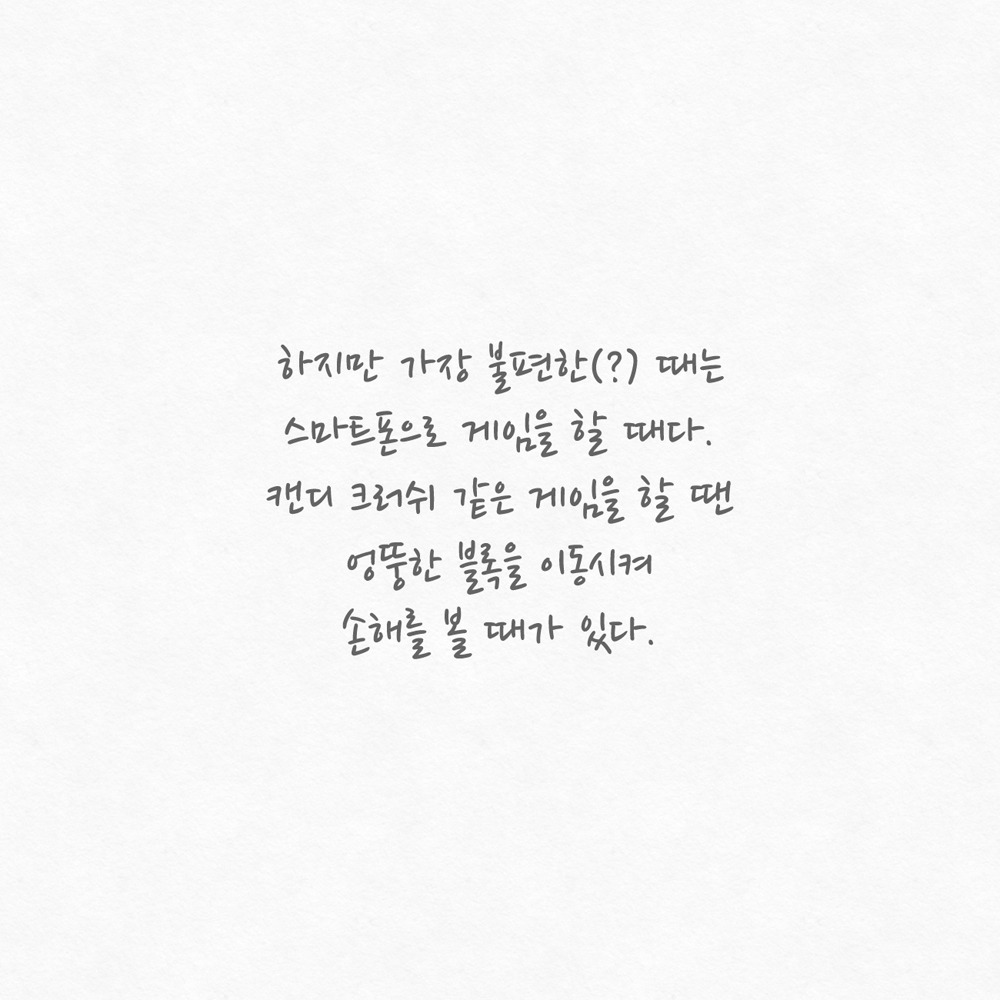 하지만 가장 불편한(?) 때는
스마트폰으로 게임을 할 때다.
캔디 크러쉬 같은 게임을 할 땐
엉뚱한 블록을 이동시켜
손해를 볼 때가 있다.